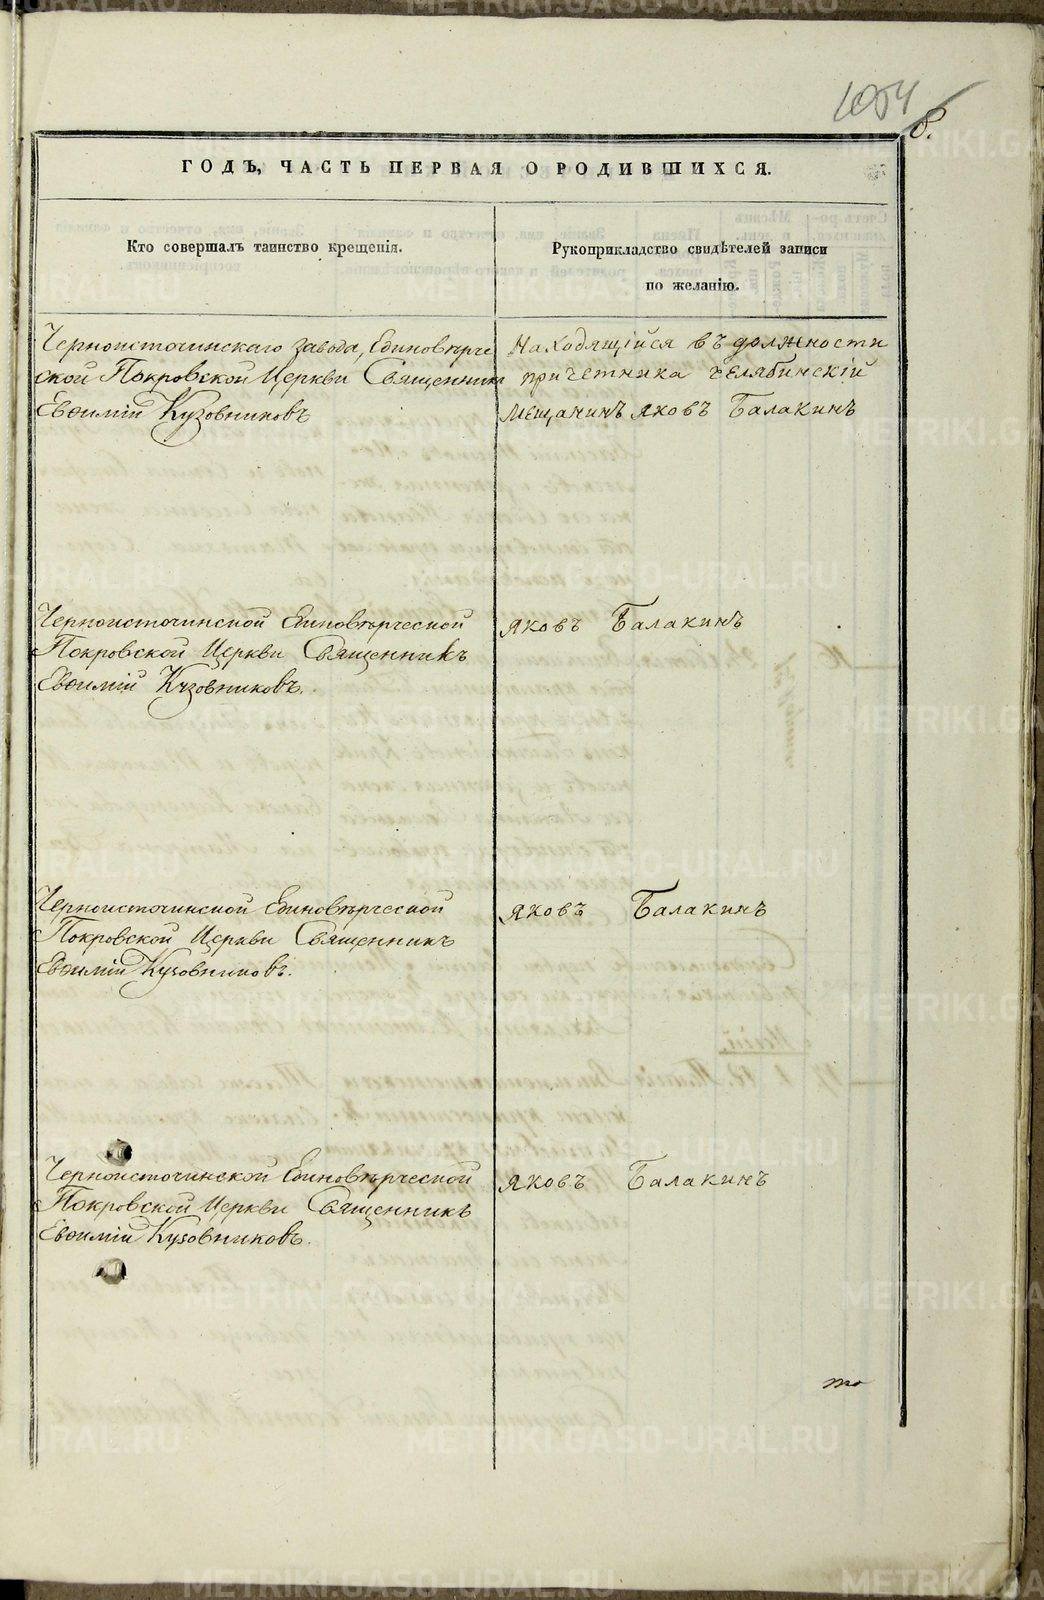 1054
8.
ГОДЪ, ЧАСТЬ ПЕРВАЯ О РОДИВШИХСЯ.
Кто совершалъ таинство крещенія.
Рукоприкладство свидѣтелей записи
по желанію.
Черноисточинскаго завода, Единовѣрче
ской Покровской Церкви Священникъ
Евѳимій Кузовниковъ
Находящійся въ должности
причетника челябинскій
мещанинъ Яковъ Балакинъ
Черноисточинской Единовѣрческой
Покровской Церкви Священникъ
Евѳимій Кузовниковъ.
Яковъ Балакинъ
Черноисточинской Единовѣрческой
Покровской Церкви Священникъ
Евѳимій Кузовниковъ.
Яковъ Балакинъ
Черноисточинской Единовѣрческой
Покровской Церкви Священникъ
Евѳимій Кузовниковъ.
Яковъ Балакинъ
METRIKI.GASO-URAL.RU